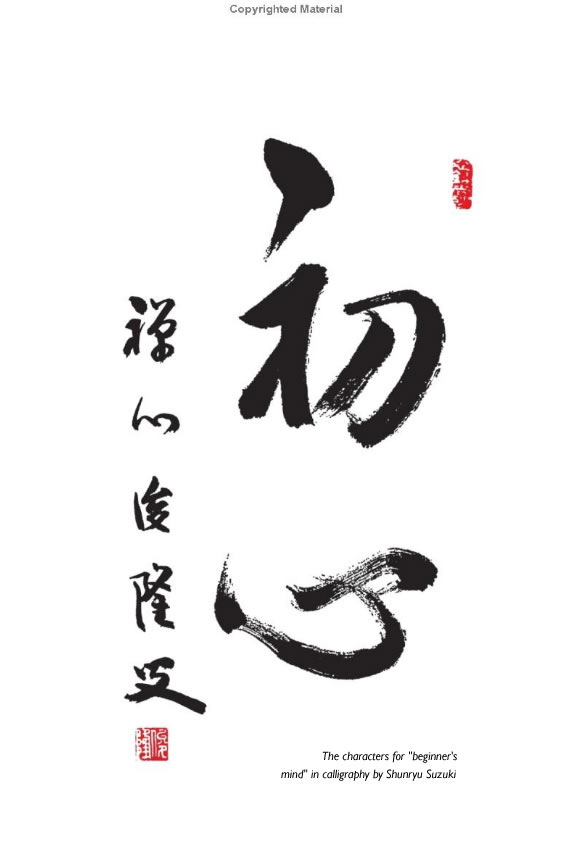 Copyrighted Material
初心
禅心俊隆
The characters for "beginner's
mind" in calligraphy by Shunryu Suzuki